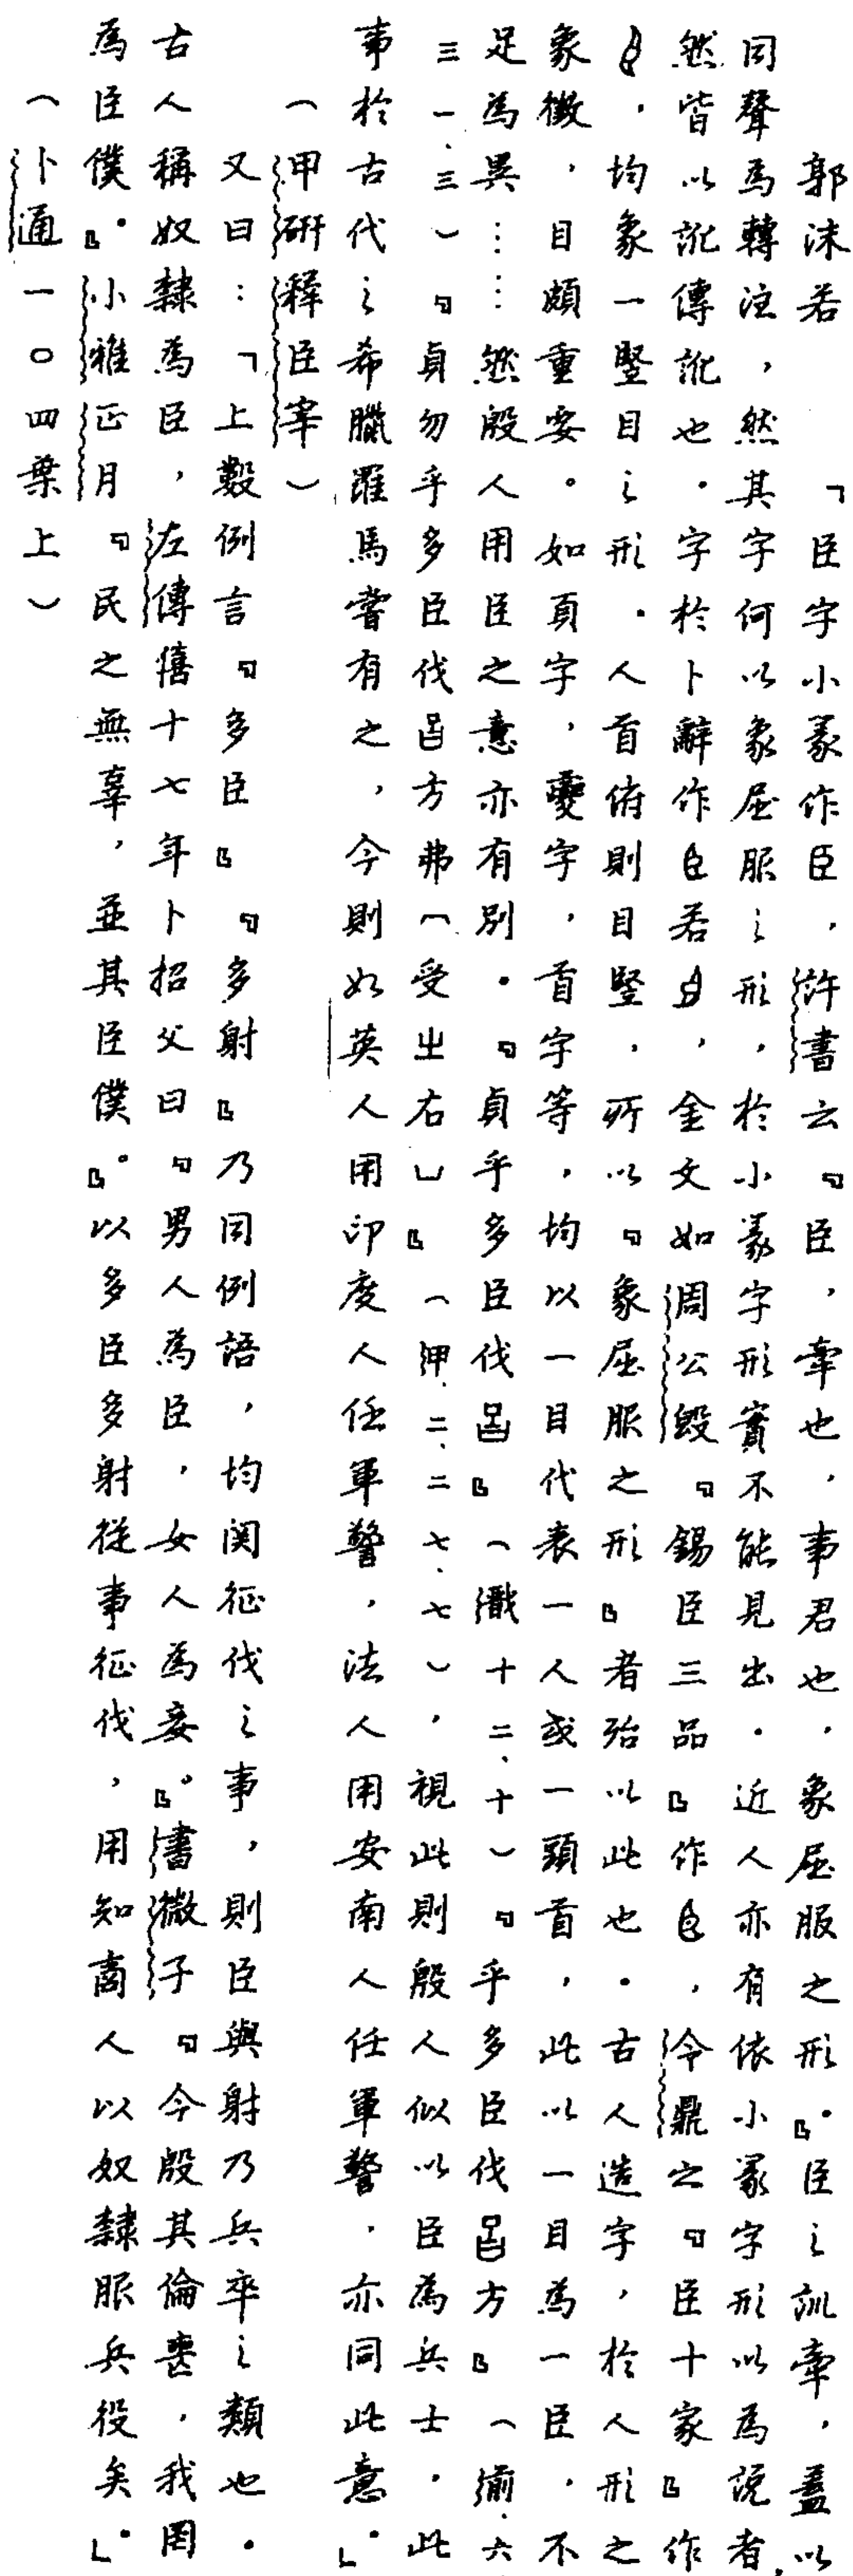 郭沫若　「臣字小篆作臣，許書云『臣，牽也，事君也，象屈服之形』。臣之訓牽，蓋以
同聲為轉注，然其字何以象屈服之形，於小篆字形實不能見出．近人亦有依小篆字形以為説者，
然皆以訛傳訛也．字於卜辭作若，金文如周公𣪘『錫臣三品』作，令鼎之『臣十家』作
，均象一豎目之形．人首俯則目豎，所以『象屈服之形』者殆以此也．古人造字，於人形之
象徵，目頗重要。如頁字，夔字，首字等，均以一目代表一人或一頭首，此以一目為一臣，不
足為異……然殷人用臣之意亦有別．『貞乎多臣伐𠮛』（戩十二、十）『乎多臣伐𠮛方』（前．六
三一、三）『貞勿乎多臣伐𠮛方弗（受㞢右）』（甲．二、二七、七），視此則殷人似以臣為兵士．此
事於古代之希臘羅馬嘗有之，今則如英人用印度人任軍警，法人用安南人任軍警，亦同此意」。
（甲研釋臣宰）
又曰：「上數例言『多臣』『多射』乃同例語，均関征伐之事，則臣與射乃兵卒之類也．
古人稱奴隸為臣，左傳僖十七年卜招父曰『男人為臣，女人為妾』。書微子『今殷其倫喪，我罔
為臣僕』。小雅正月『民之無辜，並其臣僕』。以多臣多射從事征伐，用知商人以奴隸服兵役矣」。
（卜通一〇四葉上）